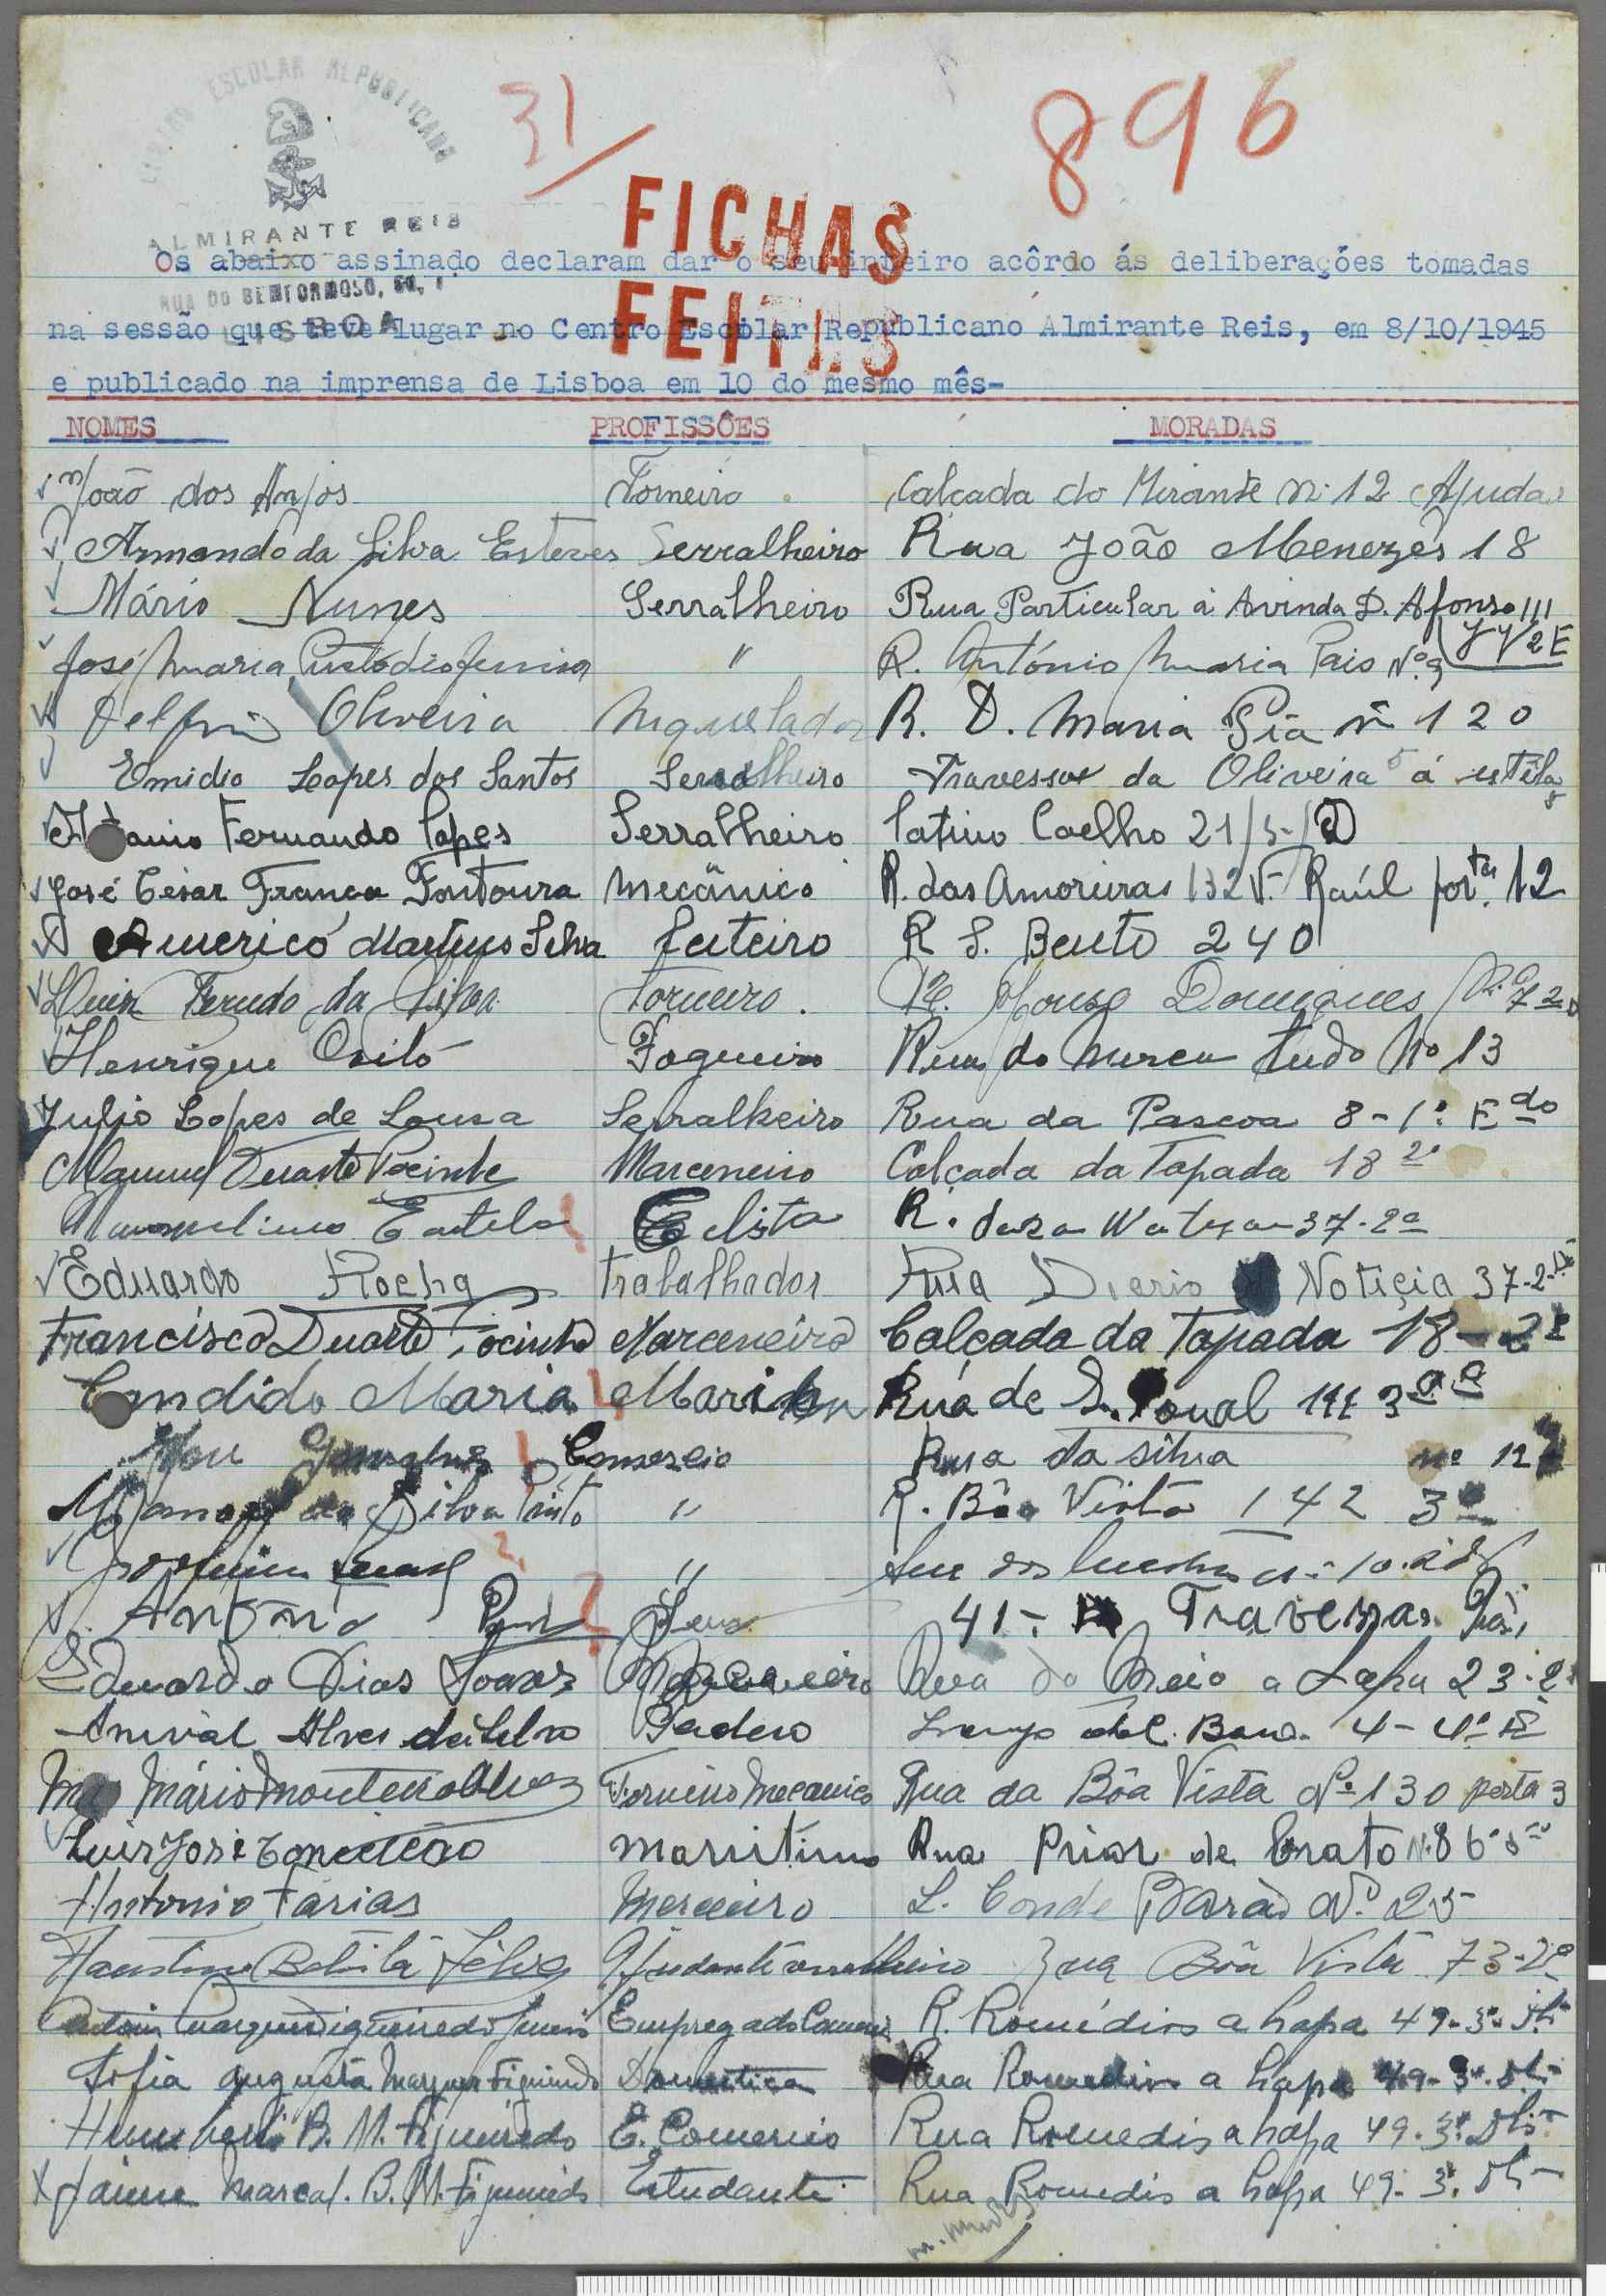 CENTRO ESCOLAR REPUBLICANO
31/
896
ALMIRANTE REIS
RUA DO BEMFORMOSO, 50, 1º
LISBOA
FICHAS
FEITAS
Os abaixo assinado declaram dar o seu inteiro acôrdo ás deliberações tomadas
na sessão que teve lugar no Centro Escolar Republicano Almirante Reis, em 8/10/1945
e publicado na imprensa de Lisboa em 10 do mesmo mês-
NOMES PROFISSÕES MORADAS
João dos Anjos Torneiro Calçada do Mirante nº 12 (Ajuda)
Armando da Silva Esteves Serralheiro Rua João Menezes 18
Mário Nunes Serralheiro Rua Particular á Avinda D. Afonso III
José Maria Custódio Junior " R. António Maria Pais Nº 9
Delfim Oliveira Niquelador R. D. Maria Pia nº 120
Emidio Lopes dos Santos Serralheiro Travessa da Oliveira á estrela 8
Fernando Lopes Serralheiro Latino Coelho 21/5-/D
José César Franca Fontoura Mecânico R. das Amoreiras 132 V. Raúl porta 12
Americo Martins Silva R S. Bento 240
da Silva Torneiro R. Afonso Domingues
Henrique Fogueiro Rua do tudo No 13
Julio Lopes de Sousa Serralheiro Rua da Pascoa 8-1º Edo
Manuel Duarte Pocinho Marceneiro Calçada da Tapada 18 2º
R. 37-2º
Eduardo Rocha trabalhador Rua Diario Noticia 37-2-
Francisco Duarte Pocinho Marceneiro Calçada da Tapada 18-2º
Candido Maria Rua de S.
Comercio Rua da silva nº 12
da Silva Pinto " R. Bôa Vista 142 3º
Joaquim "
António 41- Travessa
Eduardo Dias Soares Marceneiro Rua do Meio a Lapa 23-2º
Anival Alves da Silva Padeiro 4-4º
Mário Monteiro Alves Torneiro Mecanico Rua da Bôa Vista Nº 130 porta 3
Luis José Conceição maritimo Rua Prior de Crato N. 86
Antonio Farias Merceeiro L. Conde Barão Nº 25
Faustino Batista Félix Ajudante serralheiro Rua Bôa Vista 73-2º
Figueiredo Junior Empregado Comercio R. Romédios a Lapa 49-3º
Sofia Augusta Marques Figueiredo Domestica Rua Romedios a Lapa 49-3º
Humberto B. M. Figueiredo E. Comercio Rua Romedios a Lapa 49.3º
Jaime Marcal. B. M. Figueiredo Estudante Rua Romedios a Lapa 49-3º